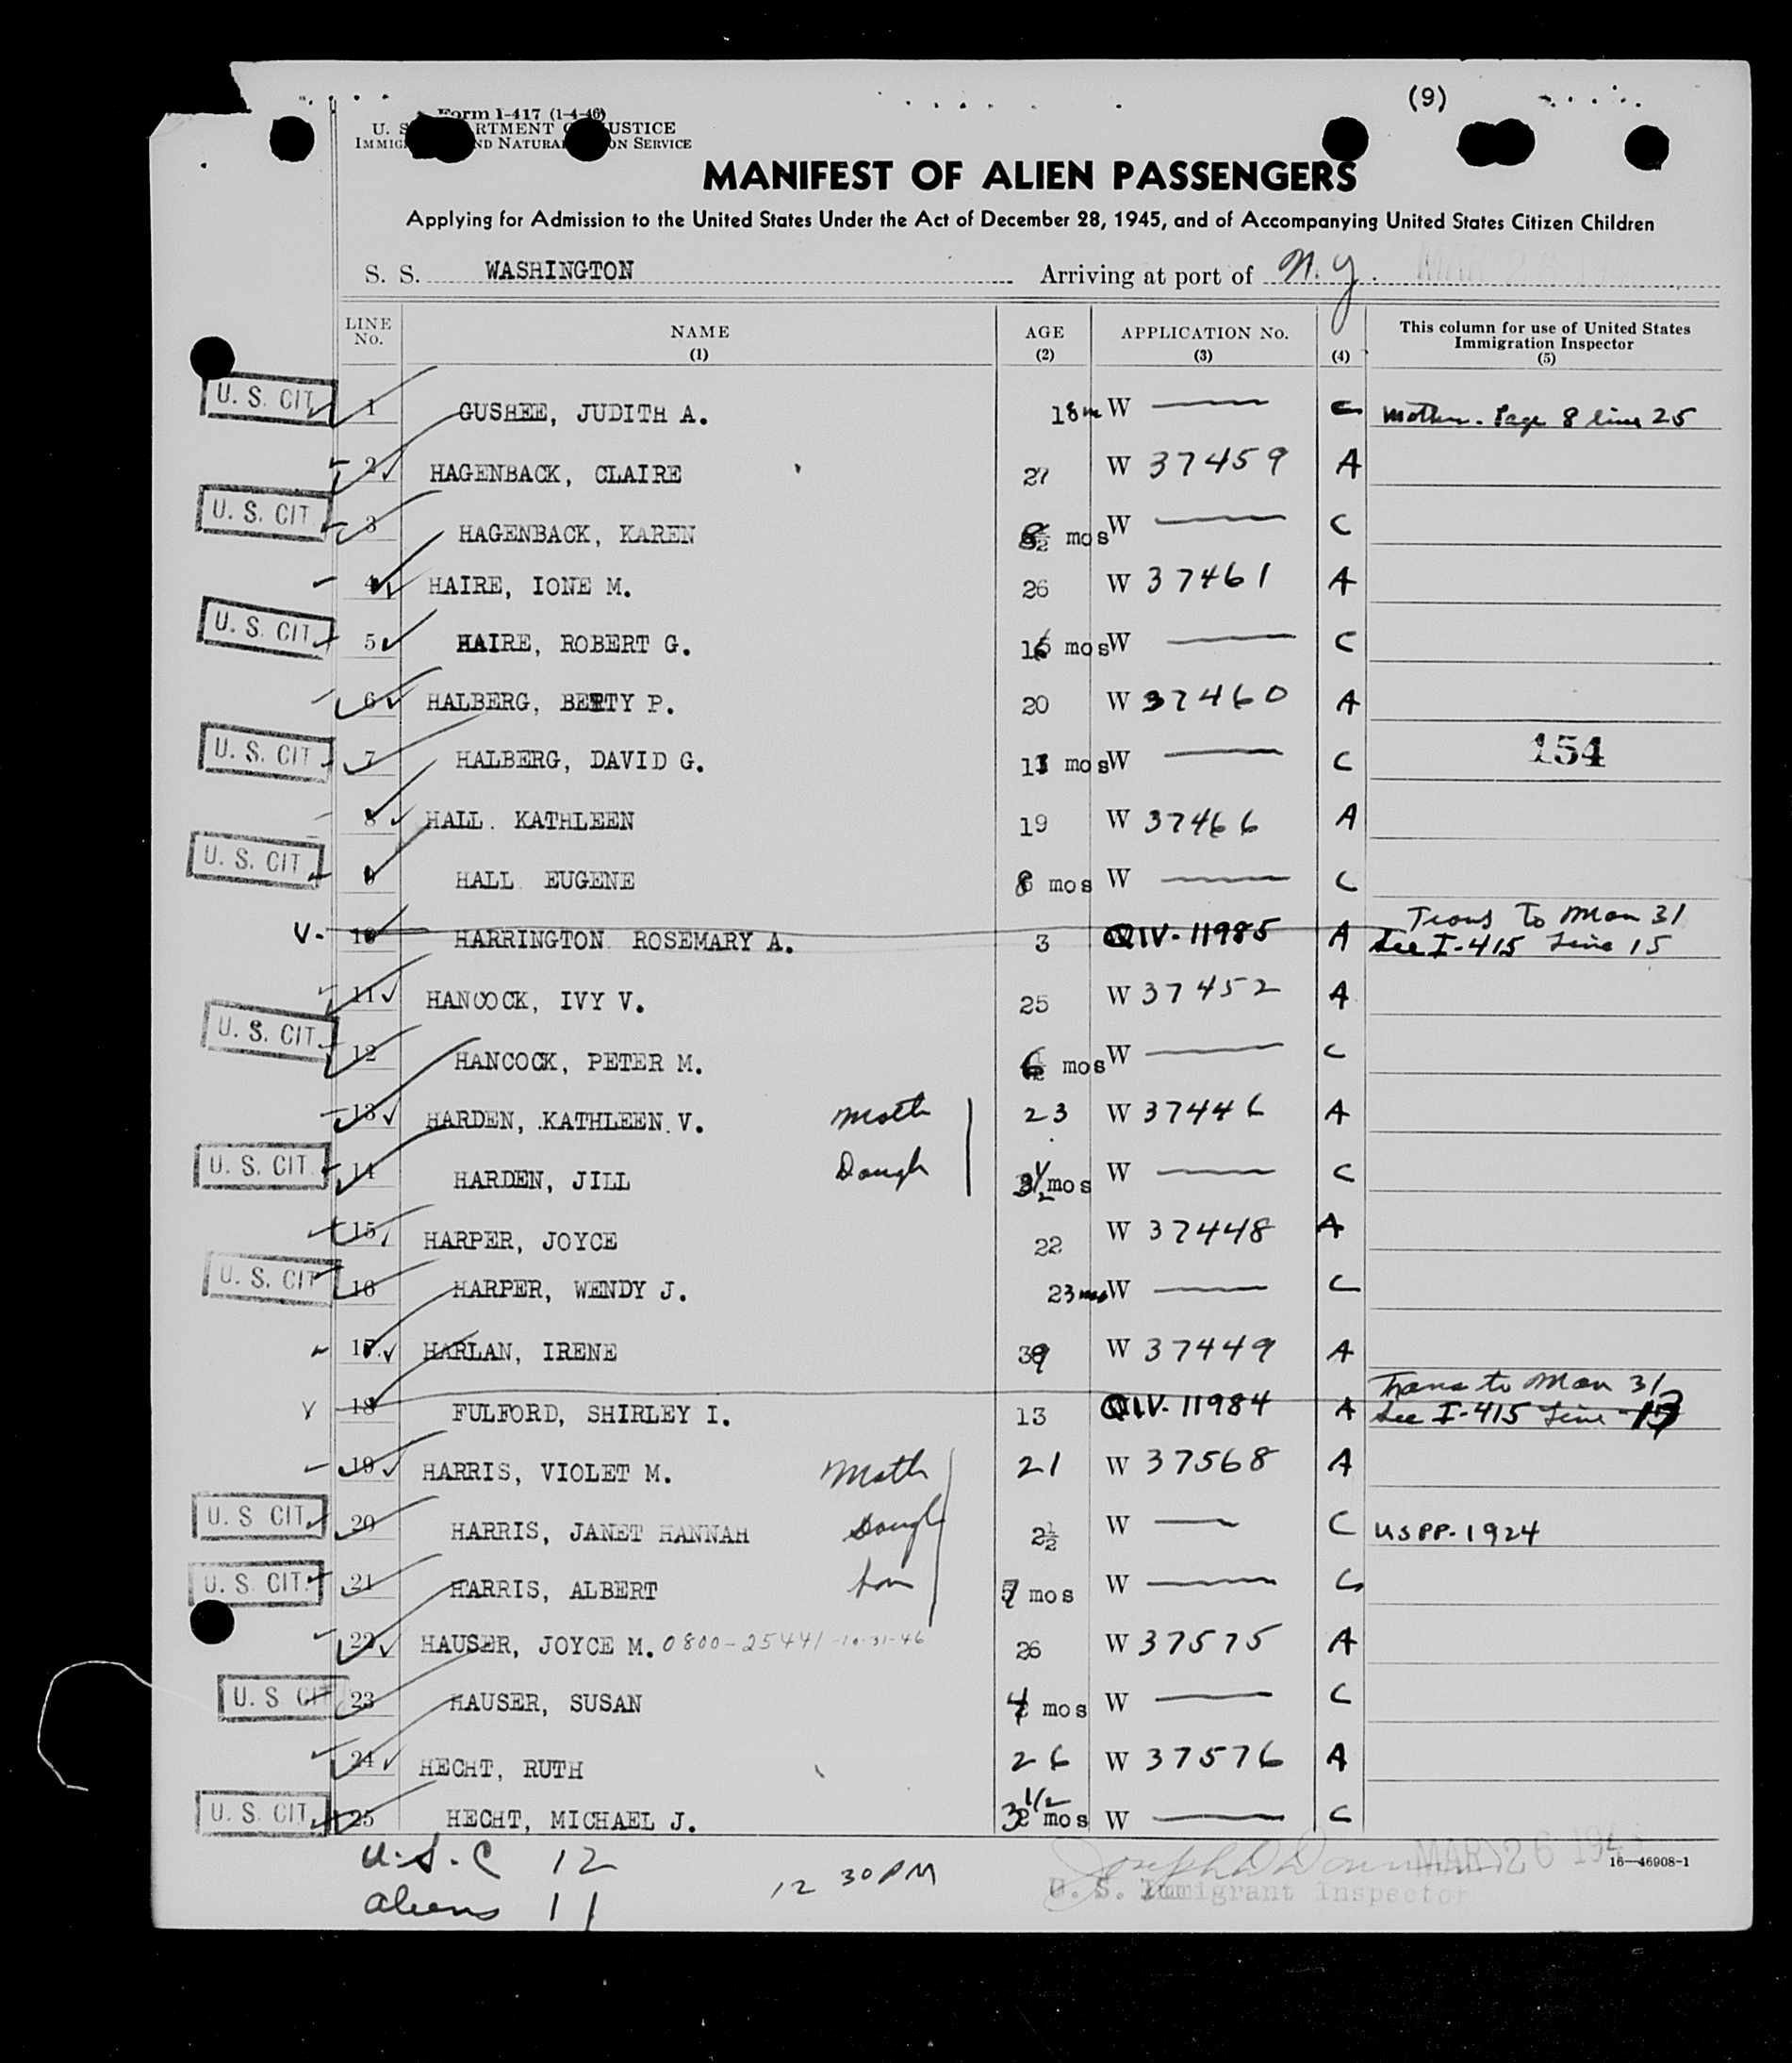 (9)
Form I-417 (1-4-46)
U. S. DEPARTMENT OF JUSTICE
IMMIGRATION AND NATURALIZATION SERVICE
MANIFEST OF ALIEN PASSENGERS
Applying for Admission to the United States Under the Act of December 28, 1945, and of Accompanying United States Citizen Children
S. S. WASHINGTON Arriving at port of N. Y.
LINE No. NAME (1) AGE (2) APPLICATION No. (3) (4) This column for use of United States Immigration Inspector (5)
U. S. CIT. 1 GUSHEE, JUDITH A. 18m W — C Mother - Page 8 line 25
2 HAGENBACK, CLAIRE 27 W 37459 A
U. S. CIT. 3 HAGENBACK, KAREN mos W — C
4 HAIRE, IONE M. 26 W 37461 A
U. S. CIT. 5 HAIRE, ROBERT G. 16 mos W — C
6 HALBERG, BETTY P. 20 W 37460 A
U. S. CIT. 7 HALBERG, DAVID G. mos W — C 154
8 HALL KATHLEEN 19 W 37466 A
U. S. CIT. 9 HALL EUGENE 8 mos W — C
V. 10 HARRINGTON ROSEMARY A. 3 QIV-11985 A Trans To Man 31 See I-415 Line 15
11 HANCOCK, IVY V. 25 W 37452 A
U. S. CIT. 12 HANCOCK, PETER M. mos W — C
13 HARDEN, KATHLEEN V. Moth 23 W 37446 A
U. S. CIT. 14 HARDEN, JILL Daugh 3 1/2 mos W — C
15 HARPER, JOYCE 22 W 37448 A
U. S. CIT 16 HARPER, WENDY J. 23 mos W — C
17 HARLAN, IRENE 39 W 37449 A
V 18 FULFORD, SHIRLEY I. 13 QIV-11984 A Trans to Man 31 See I-415 Line 13
19 HARRIS, VIOLET M. Moth 21 W 37568 A
U. S CIT. 20 HARRIS, JANET HANNAH Daugh 2½ W — C USPP-1924
U. S. CIT. 21 HARRIS, ALBERT Son 7 mos W — C
22 HAUSER, JOYCE M. 0800-25441-10-31-46 26 W 37575 A
U. S CIT 23 HAUSER, SUSAN 4 mos W — C
24 HECHT, RUTH 26 W 37576 A
U. S. CIT. 25 HECHT, MICHAEL J. 3 1/2 mos W — C
U.S.C 12
Aliens 11
12 30 PM
MAR 26 194
U. S. Immigrant Inspector
16—46908-1